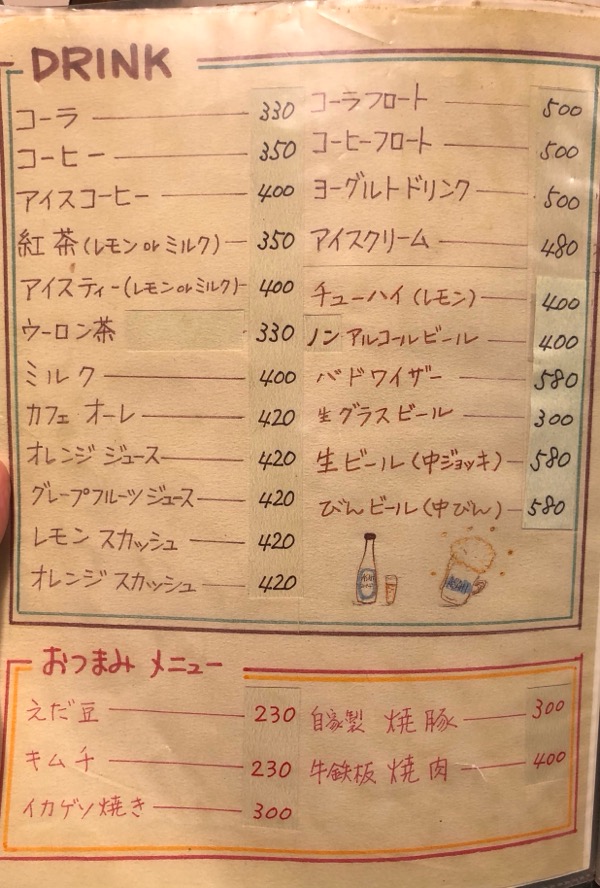 DRINK
コーラ 330
コーヒー 350
アイスコーヒー 400
紅茶(レモンorミルク) 350
アイスティー(レモンorミルク) 400
ウーロン茶 330
ミルク 400
カフェ オーレ 420
オレンジ ジュース 420
グレープフルーツ ジュース 420
レモン スカッシュ 420
オレンジ スカッシュ 420
コーラフロート 500
コーヒーフロート 500
ヨーグルトドリンク 500
アイスクリーム 480
チューハイ(レモン) 400
ノンアルコールビール 400
バドワイザー 580
生グラスビール 300
生ビール(中ジョッキ) 580
びんビール(中びん) 580
おつまみ メニュー
えだ豆 230
キムチ 230
イカゲソ焼き 300
自家製 焼豚 300
牛鉄板 焼肉 400